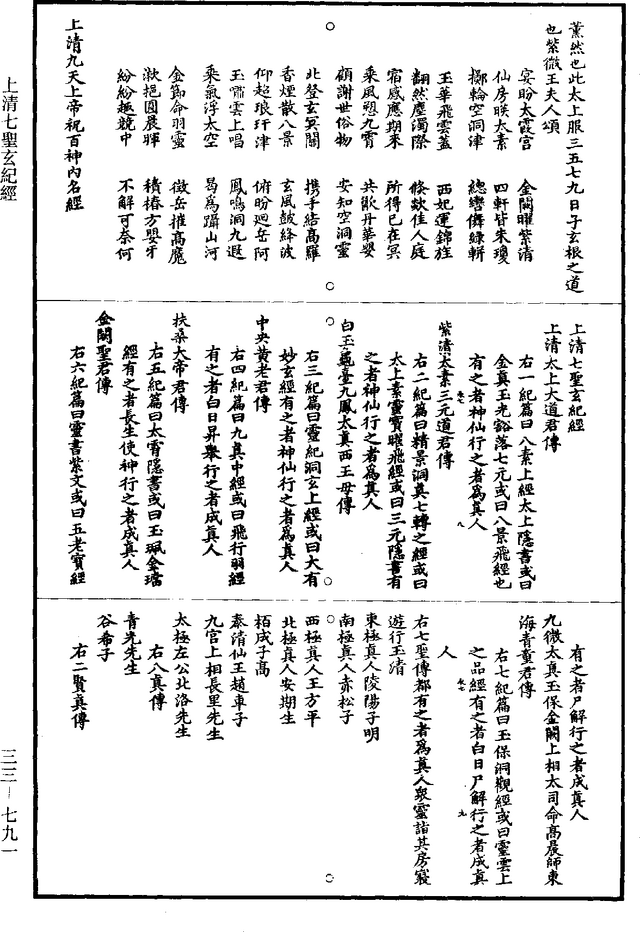 薰然也此太上服三五七九日子玄根之道
也紫微王夫人頌
宴盼太霞宮　金闕曜紫清
仙房暎太素　四軒皆朱瓊
擲輪空洞津　總轡儛綠軿
玉華飛雲蓋　西妃運錦旌
翻然塵濁際　倐欻佳人庭
宿感應期來　所得已在冥
乘風憩九霄　共酣丹華嬰
顧謝世俗物　安知空洞靈
北登玄冥闕　携手結高羅
香煙散八景　玄風鼓絳波
仰超琅玕津　俯盼迴岳阿
玉嘯雲上唱　鳳鳴洞九遐
乘氣浮太空　曷為躡山河
金節命羽靈　徵岳摧高魔
漱挹圓晨暉　積椿方嬰牙
紛紛趣競中　不解可奈何
上清九天上帝祝百神內名經
上清七聖玄紀經
上清太上大道君傳
右一紀篇曰八素上經太上隱書或曰
金真玉光豁落七元或曰八景飛經也
有之者神仙行之者為真人
紫清太素三元道君傳
右二紀篇曰精景洞真七轉之經或曰
太上素靈寶曜飛經或曰三元隱書有
之者神仙行之者為真人
白玉龜臺九鳳太真西王母傳
右三紀篇曰靈紀洞玄上經或曰大有
妙玄經有之者神仙行之者為真人
中央黃老君傳
右四紀篇曰九真中經或曰飛行羽經
有之者白日昇舉行之者成真人
扶桑大帝君傳
右五紀篇曰太霄隱書或曰玉珮金璫
經有之者長生使神行之者成真人
金闕聖君傳
右六紀篇曰靈書紫文或曰五老寶經
有之者尸解行之者成真人
九微太真玉保金闕上相太司命高晨師東
海青童君傳
右七紀篇曰玉保洞觀經或曰靈雲上
之品經有之者白日尸解行之者成真
人
右七聖傳都有之者為真人衆靈詣其房寢
遊行玉清
東極真人陵陽子明
南極真人赤松子
西極真人王方平
北極真人安期生
栢成子高
泰清仙王趙車子
九宮上相長里先生
太極左公北洛先生
右八真傳
青光先生
谷希子
右二賢真傳
上清七聖玄紀經
三三—七九一